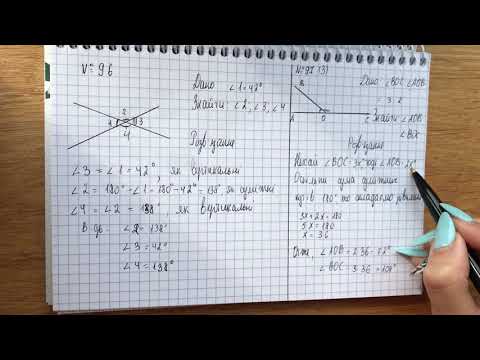 № 96
Дано ∠1=42°
Знайти: ∠2, ∠3, ∠4
2
1 3
4
Розв'язання
∠3 = ∠1 = 42°, як вертикальні
∠2 = 180° - ∠1 = 180° - 42° = 138° як суміжні
∠4 = ∠2 = 138°, як вертикальні
В-дь ∠2 = 138°
∠3 = 42°
∠4 = 138°
№ 97 (3)
Дано: ∠BOC : ∠AOB
= 3:2
Знайти ∠AOB
∠BOC
B
A O C
Розв'язання
Нехай ∠BOC = 3x° тоді ∠AOB = 2x°
Оскільки сума суміжних
кутів 180° то складаємо рівняння
3x + 2x = 180
5x = 180
x = 36
Отже, ∠AOB = 2·36 = 72°
∠BOC = 3·36 = 108°